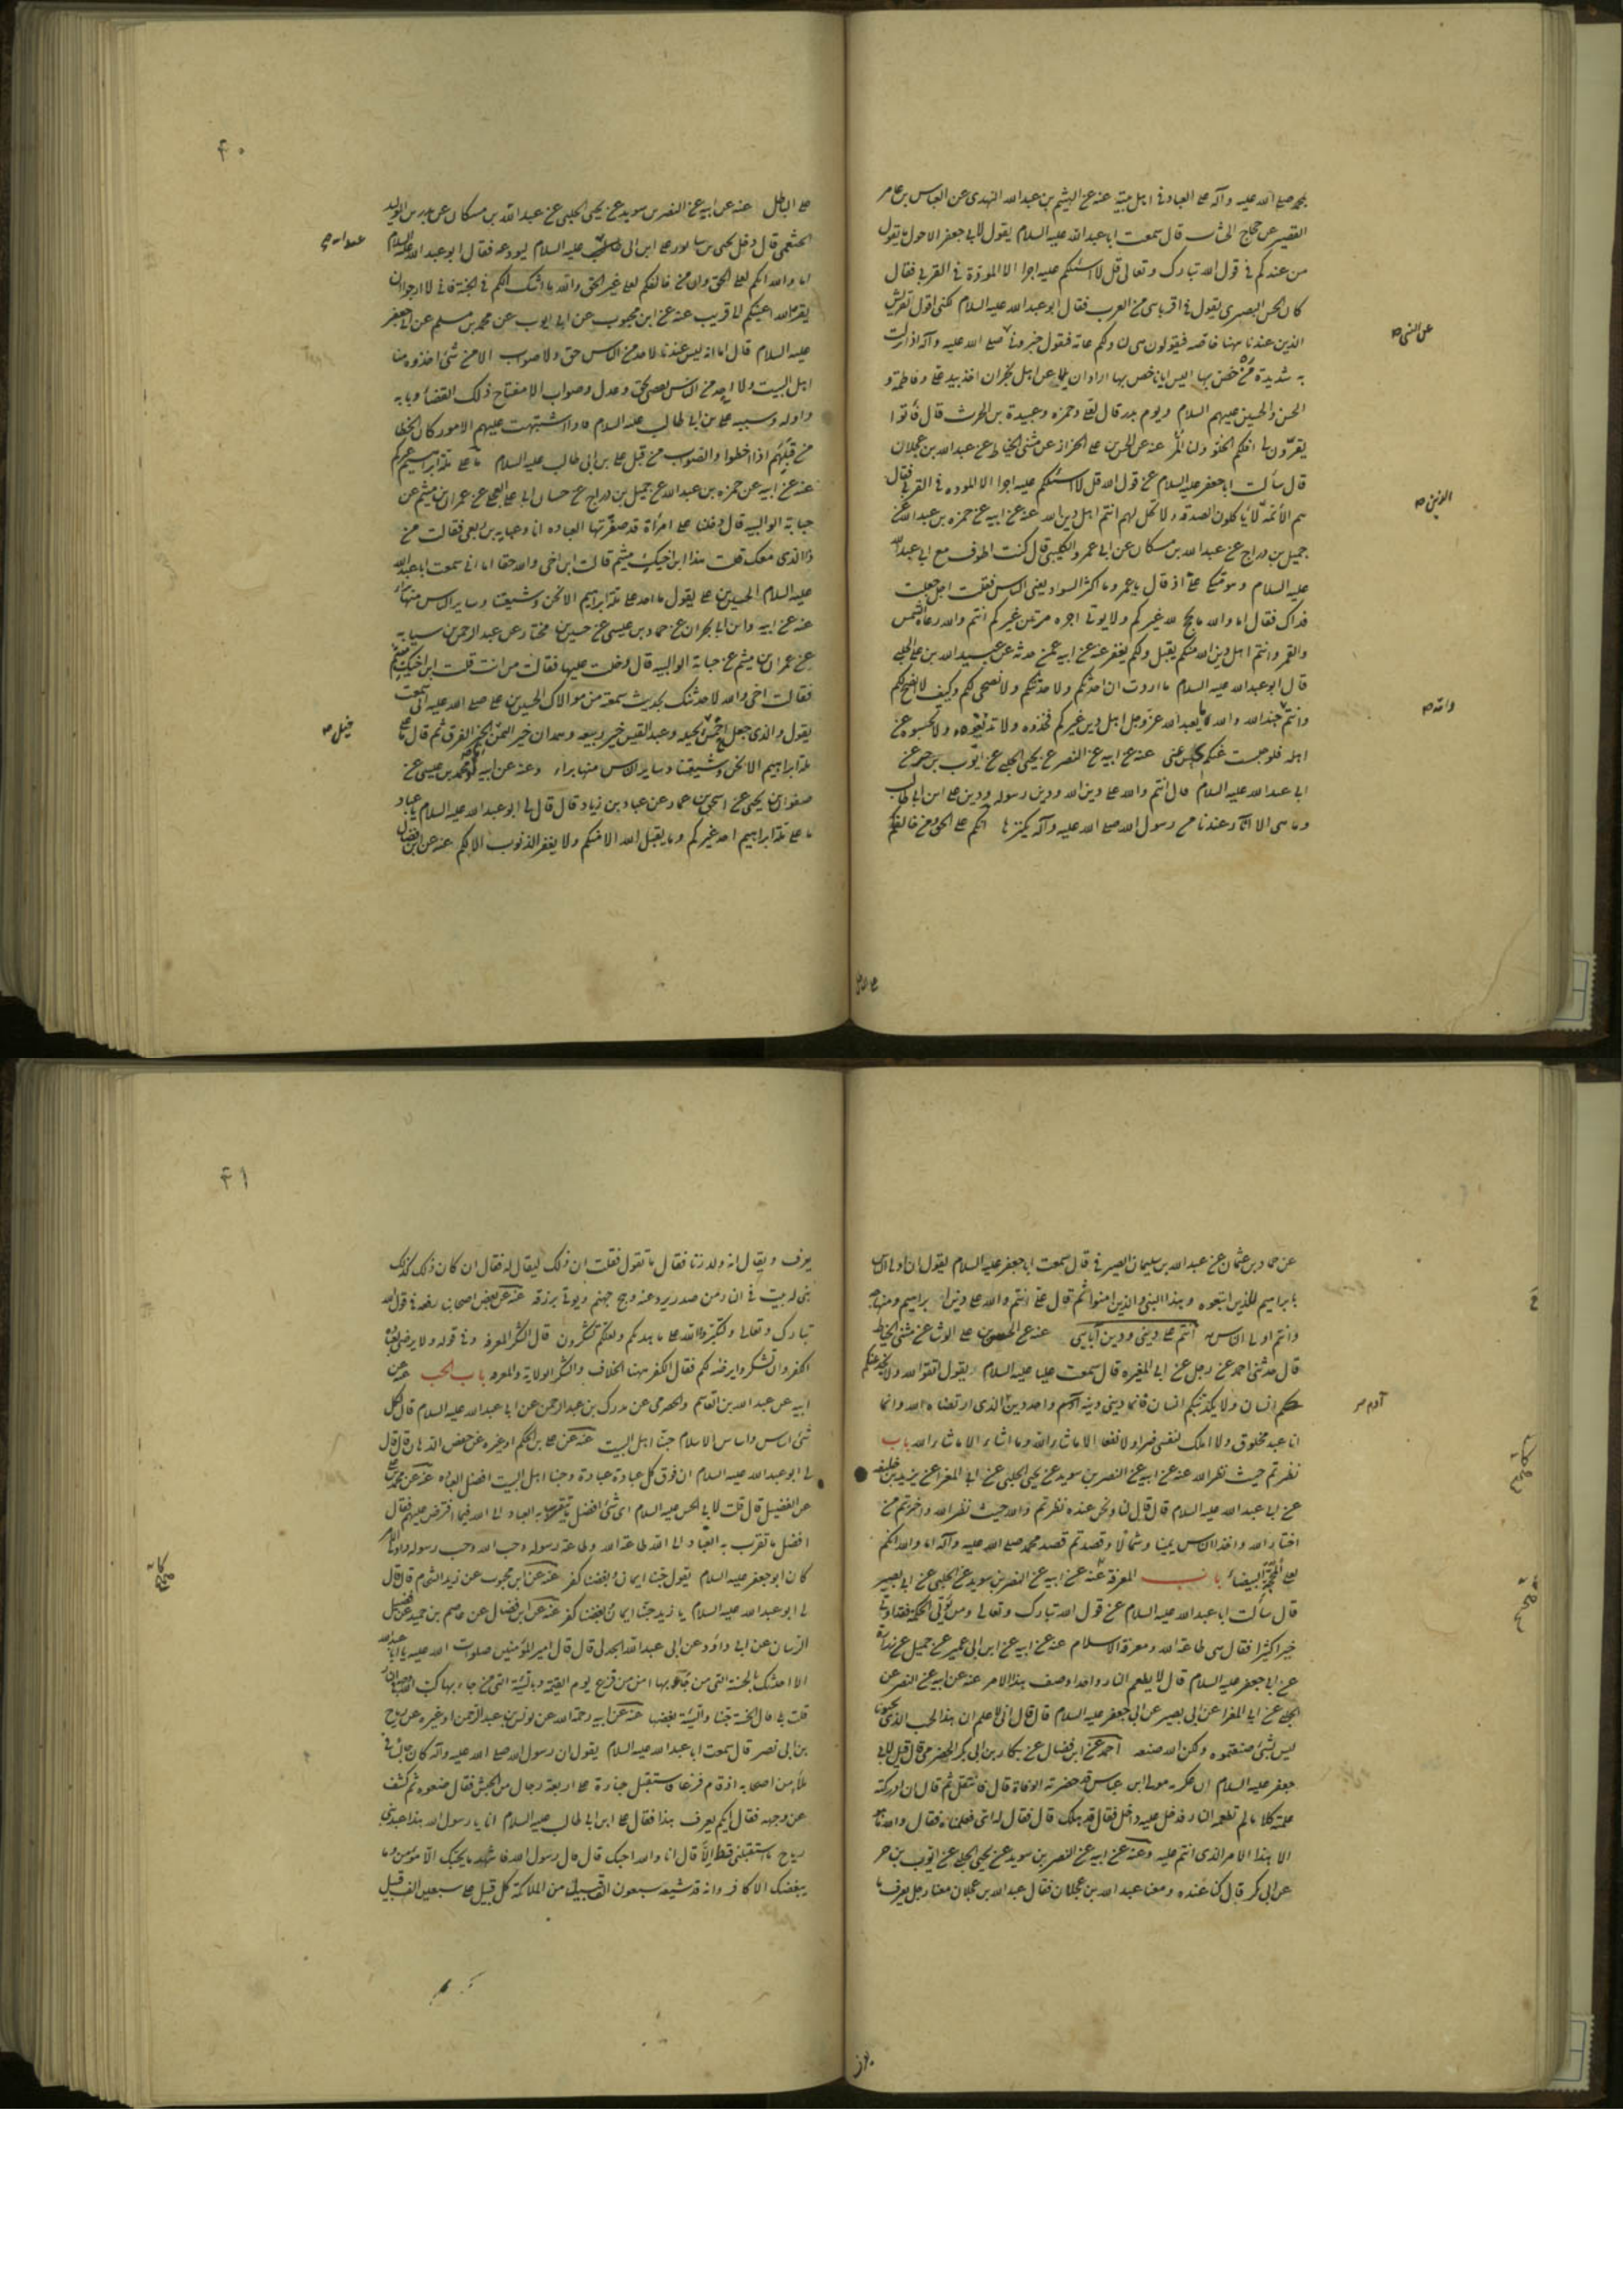 بمحمد صلى الله عليه وآله على العباد في اهل بيته عنه عن الهيثم بن عبدالله النهدى عن العباس بن عامر
القصير عن حجاج الخشاب قال سمعت ابا عبدالله عليه السلام يقول لابي جعفر الاحول ما تقول
من عندكم في قول الله تبارك وتعالى قل لا اسئلكم عليه اجرا الا المودة في القربى فقال
كان الحسن البصرى يقول في اقربائي من العرب فقال ابو عبدالله عليه السلام لكنى اقول لقريش
الذين عندنا هنا خاصة فيقولون هى لنا ولكم عامة فنقول خبرونا عن النبي صلى الله عليه وآله اذا نزلت
به شديدة من خص بها اليس ايانا خص بها اراد ان يلاعن اهل نجران اخذ بيد على وفاطمة و
الحسن والحسين عليهم السلام ويوم بدر قال لعلى وحمزه وعبيدة بن الحرث قال فأبوا
يقرون لى افلكم الحلو ولنا المر عنه عن الحسن بن على الخزاز عن مثنى الحناط عن عبدالله بن عجلان
قال سألت ابا جعفر عليه السلام عن قول الله قل لا اسئلكم عليه اجرا الا المودة في القربى فقال
هم الأئمة الذين لا يأكلون الصدقة ولا تحل لهم انتم اهل دين الله عنه عن ابيه عن حمزه بن عبدالله عن
جميل بن دراج عن عبدالله بن مسكان عن ابى عمرو الكلبى قال كنت اطوف مع ابى عبدالله
عليه السلام وهو متكى على اذ قال يا عمرو ما اكثر السواد يعنى الناس فقلت اجل جعلت
فداك فقال اما والله ما يحج لله غيركم ولا يوتى اجره مرتين غيركم انتم والله رعاة الشمس
والقمر وانتم اهل دين الله منكم يقبل ولكم يغفر عنه عن ابيه عمن حدثه عن عبيدالله بن على الحلبى
قال ابو عبدالله عليه السلام ما اردت ان احدثكم ولاحدثنكم ولانصحن لكم وكيف لا انصح لكم
وانتم والله جند الله والله ما يعبد الله عز وجل اهل دين غيركم فخذوه ولا تذيعوه ولا تحبسوه عن
اهله فلو حبست عنكم يحبس عنى عنه عن ابيه عن النضر عن يحيى الحلبى عن ايوب بن حر عن
ابى عبدالله عليه السلام قال انتم والله على دين الله ودين رسوله ودين على ابن ابى طالب
وما هى الا آثار عندنا من رسول الله صلى الله عليه وآله يكنزها انكم على الحق ومن خالفكم
عن النبى صح
الذين صح
والله صح
على الباطل
۴۰
على الباطل عنه عن ابيه عن النضر بن سويد عن يحيى الحلبى عن عبدالله بن مسكان عن بدر بن الوليد
الخثعمى قال دخل يحيى بن سابور على ابى عبدالله عليه السلام ليودعه فقال ابو عبدالله عليه السلام
اما والله انكم لعلى الحق وان من خالفكم لعلى غير الحق والله ما اشك انكم في الجنة فانى لارجو ان
يقر الله اعينكم الى قريب عنه عن ابن محبوب عن ابى ايوب عن محمد بن مسلم عن ابى جعفر
عليه السلام قال اما انه ليس عندنا لاحد من الناس حق ولا صواب الا من شئ اخذوه منا
اهل البيت ولا احد من الناس يقضى بحق وعدل وصواب الا مفتاح ذلك القضاء وبابه
واوله وسببه على بن ابى طالب عليه السلام فاذا اشتبهت عليهم الامور كان الخطا
من قبلهم اذا اخطوا والصواب من قبل على بن ابى طالب عليه السلام ما على ملة ابراهيم غيركم
عنه عن ابيه عن حمزه بن عبدالله عن جميل بن دراج عن حسان ابى على العجلى عن عمران بن ميثم عن
حبابة الوالبيه قال دخلنا على امرأة قد صفرتها العباده انا وعبايه بن ربعى فقالت من
ذا الذى معك قلت هذا ابن اخيك ميثم قالت ابن اخى والله حقا اما انى سمعت ابا عبدالله
عليه السلام الحسين بن على يقول ما احد على ملة ابراهيم الا نحن وشيعتنا وساير الناس منها براء
عنه عن ابيه وابن ابى نجران عن حماد بن عيسى عن حسين بن مختار عن عبدالرحمن بن سيابه
عن عمران بن ميثم عن حبابة الوالبيه قال دخلت عليها فقالت من انت قلت ابن اخيك ميثم
فقالت اخى والله لاحدثنك بحديث سمعته من مولاك الحسين بن على صلى الله عليه انى سمعت
يقول والذى جعل احمس خير بجيله وعبدالقيس خير ربيعه وهمدان خير اليمن انكم لخير الفرق ثم قال ما على
ملة ابراهيم الا نحن وشيعتنا وساير الناس منها براء وعنه عن ابيه ومحمد بن عيسى عن
صفوان بن يحيى عن اسحق بن عمار عن عباد بن زياد قال قال لى ابو عبدالله عليه السلام يا عباد
ما على ملة ابراهيم احد غيركم وما يقبل الله الا منكم ولا يغفر الذنوب الا لكم عنه عن ابن فضال
عبدالله صح
عن حماد بن عثمان عن عبدالله بن سليمان الصيرفى قال سمعت ابا جعفر عليه السلام يقول ان اولى الناس
بابراهيم للذين اتبعوه وهذا النبى والذين امنوا ثم قال على انتم والله على دين ابراهيم ومنهاجه
وانتم اولى الناس به انتم على دينى ودين آبائى عنه عن الحسن بن على الوشاء عن مثنى الحناط
قال حدثنى احمد عن رجل عن ابى المغيره قال سمعت عليا عليه السلام يقول اتقوا الله ولا يخدعنكم
انسان ولا يكذبنكم انسان فانما دينى دينه آدم واحد دين الذى ارتضاه الله وانما
انا عبد مخلوق ولا املك لنفسى ضرا ولا نفعا الا ما شاء الله وما اشاء الا ما شاء الله باب
نظرتم حيث نظر الله عنه عن ابيه عن النضر بن سويد عن يحيى الحلبى عن ابى المغرا عن يزيد بن خليفه
عن ابى عبدالله عليه السلام قال قال لنا ونحن عنده نظرتم والله حيث نظر الله واخترتم من
اختار الله واخذ الناس يمينا وشمالا وقصدتم قصد محمد صلى الله عليه وآله اما والله انكم
لعلى المحجة البيضاء باب المعرفة عنه عن ابيه عن النضر بن سويد عن الحلبى عن ابى بصير
قال سألت ابا عبدالله عليه السلام عن قول الله تبارك وتعالى ومن يؤتى الحكمة فقد اوتى
خيرا كثيرا فقال هى طاعة الله ومعرفة الاسلام عنه عن ابيه عن ابن ابى عمير عن جميل عن زراره
عن ابى جعفر عليه السلام قال لا يطعم النار واحدا وصف هذا الامر عنه عن ابيه عن النضر عن
الحلبى عن ابى المغرا عن ابى بصير عن ابى جعفر عليه السلام قال قال انى لاعلم ان هذا الحب الذى تحبونا
ليس بشئ صنعتموه ولكن الله صنعه احمد عن ابن فضال عن بكار بن ابى بكر الحضرمى قال قيل لابى
جعفر عليه السلام ان عكرمه مولى ابن عباس قد حضرته الوفاة قال فانتقل ثم قال ان ادركته
علمته كلاما لم تطعمه النار فدخل عليه داخل فقال قد هلك قال فقال له ابى فعلمناه فقال والله ما هو
الا هذا الامر الذى انتم عليه وعنه عن ابيه عن النضر بن سويد عن يحيى الحلبى عن ايوب بن حر
عن ابى بكر قال كنا عنده ومعنا عبدالله بن عجلان فقال عبدالله بن عجلان معنا رجل يعرف ما
آدم صح
۴۱
يعرف ويقال انه ولد زنا فقال ما تقول فقلت ان ذلك ليقال له فقال ان كان ذلك كذلك
بنى له بيت في النار من صدر يرد عنه وهج جهنم ويوتى برزقه عنه عن بعض اصحابنا رفعه في قول الله
تبارك وتعالى ولتكبروا الله على ما هديكم ولعلكم تشكرون قال الشكر المعرفه وفى قوله ولا يرضى لعباده
الكفر وان تشكروا يرضه لكم فقال الكفر ههنا الخلاف والشكر الولاية والمعرفه باب الحب عنه عن
ابيه عن عبدالله بن القاسم الحضرمى عن مدرك بن عبدالرحمن عن ابى عبدالله عليه السلام قال لكل
شئ اساس واساس الاسلام حبنا اهل البيت عنه عن على بن الحكم او غيره عن حفص الدهان قال قال
لى ابو عبدالله عليه السلام ان فوق كل عبادة عبادة وحبنا اهل البيت افضل العباده عنه عن محمد بن على
عن الفضيل قال قلت لابى الحسن عليه السلام اى شئ افضل ما يتقرب به العباد الى الله فيما افترض عليهم فقال
افضل ما تقرب به العباد الى الله طاعة الله وطاعة رسوله وحب الله وحب رسوله واولى الامر
كان ابو جعفر عليه السلام يقول حبنا ايمان وبغضنا كفر عنه عن ابن محبوب عن زيد الشحام قال قال
لى ابو عبدالله عليه السلام يا زيد حبنا ايمان وبغضنا كفر عنه عن ابن فضال عن عاصم بن حميد عن فضيل
الرسان عن ابى داود عن ابى عبدالله الجدلى قال قال امير المؤمنين صلوات الله عليه يا ابا عبدالله
الا احدثك بالحسنة التى من جاء بها امن من فزع يوم القيمة وبالسيئة التى من جاء بها كب الله وجهه في النار
قلت بلى قال الحسنة حبنا والسيئة بغضنا عنه عن ابيه رحمة الله عن يونس بن عبدالرحمن او غيره عن رباح
بن ابى نصر قال سمعت ابا عبدالله عليه السلام يقول ان رسول الله صلى الله عليه وآله كان جالسا في
ملأ من اصحابه اذ قام فزعا فاستقبل جنازة على اربعة رجال من الحبش فقال ضعوه ثم كشف
عن وجهه فقال ايكم يعرف هذا فقال على ابن ابى طالب عليه السلام انا يا رسول الله هذا عبد بنى
رياح ما استقبلنى قط الا قال انا والله احبك قال قال رسول الله فاشهد ما يحبك الا مؤمن وما
يبغضك الا كافر وانه قد شيعه سبعون الف قبيل من الملائكة كل قبيل على سبعين الف قبيل